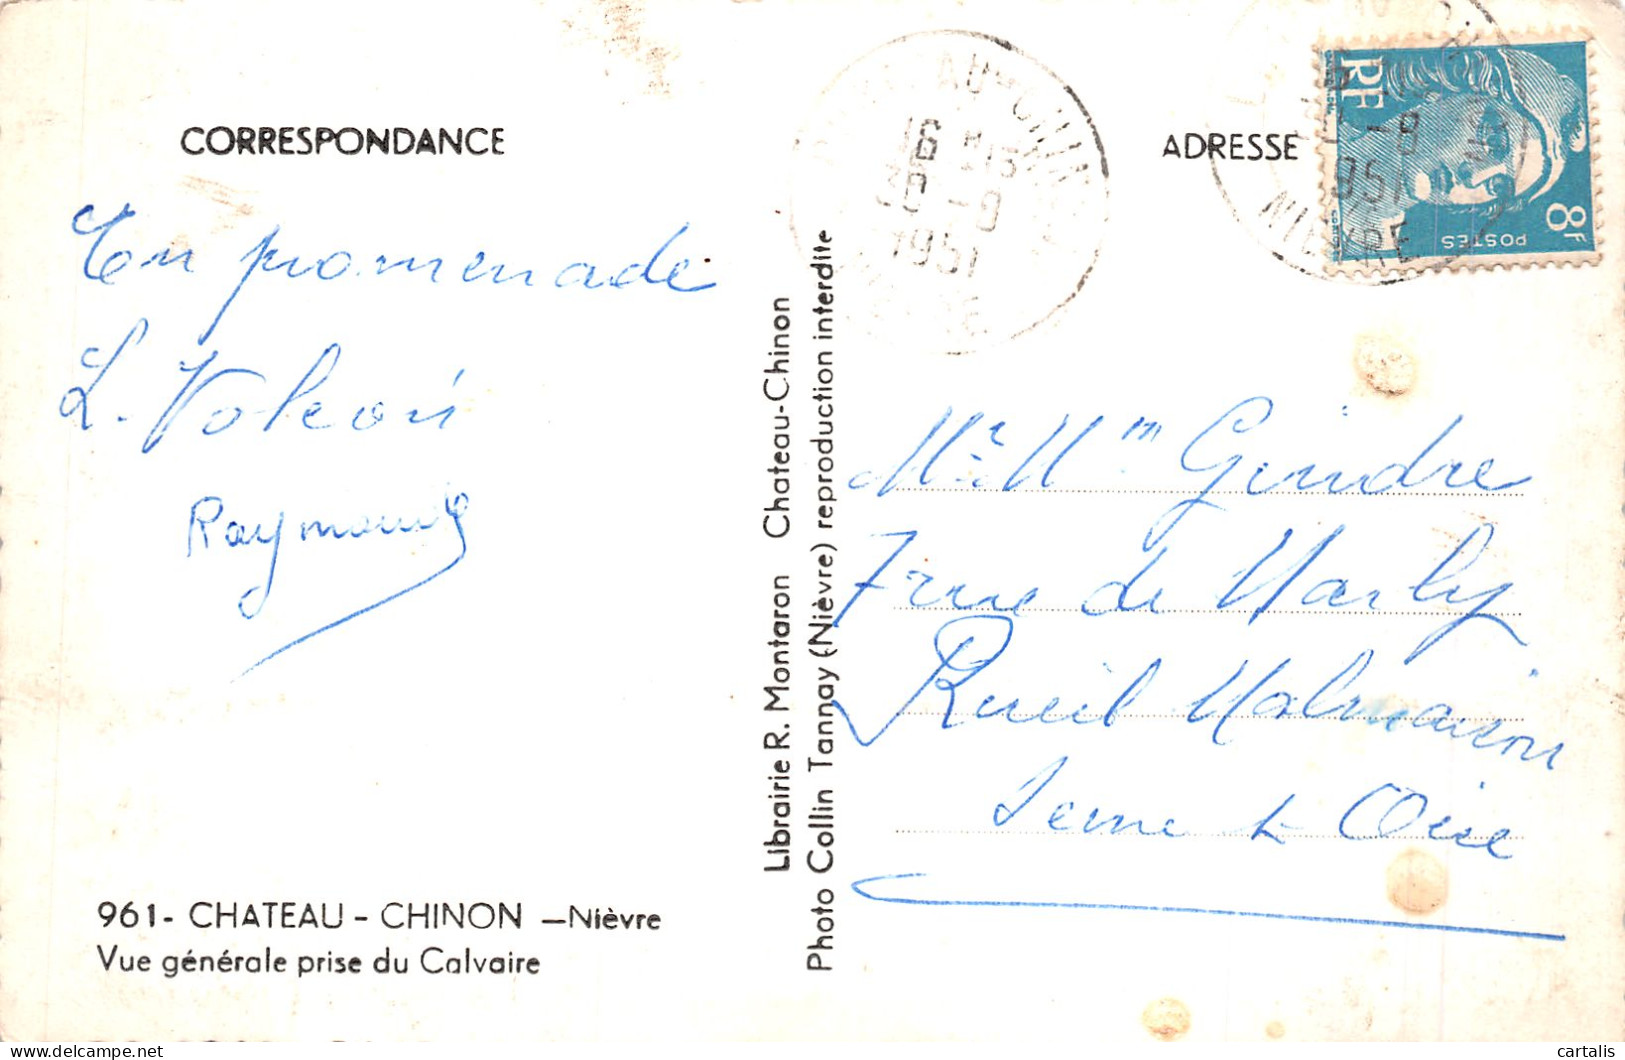 CORRESPONDANCE
En promenade
L.
Raymonde
961- CHATEAU - CHINON —Nièvre
Vue générale prise du Calvaire
Librairie R. Montaron Chateau-Chinon
Photo Collin Tannay (Nièvre) reproduction interdite
16 H 15
30 -9
1951
NIEVRE
ADRESSE
RF
8F
POSTES
-9
1951
NIEVRE
Mr Mm Gindre
7 rue de Marly
Rueil Malmaison
Seine & Oise
cartalis